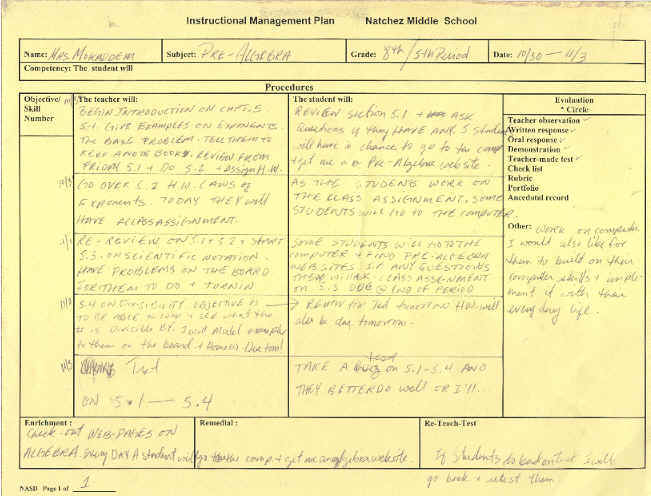 Instructional Management Plan Natchez Middle School
Name: Mrs. Mokandem Subject: PRE-ALGEBRA Grade: 8th / 5th Period Date: 10/30 - 11/3
Competency: The student will
Procedures
Objective/ Skill Number
The teacher will:
BEGIN INTRODUCTION ON CHPT. 5
5-1 GIVE EXAMPLES ON EXPONENTS
THE BASE PROBLEM. TELL THEM TO
KEEP A NOTE BOOK. REVIEW FROM
FRIDAY 5.1 + DO 5.2 + assign H.W.
The student will:
REVIEW section 5.1 + ASK
Questions if they HAVE ANY. 5 students
will have a chance to go to the comp
+ get me a Pre-Algebra website.
GO OVER 5.2 H.W. LAWS of
Exponents. TODAY THEY will
HAVE A CLASS ASSIGNMENT.
AS THE STUDENTS WORK ON
THE CLASS ASSIGNMENT, SOME
STUDENTS will GO TO THE COMPUTER.
RE-REVIEW ON 5.1 + 5.2 + START
5.3 ON SCIENTIFIC NOTATION.
HAVE PROBLEMS ON THE BOARD
FOR THEM TO DO + TURN IN
SOME STUDENTS Will GO TO THE
COMPUTER + FIND PRE-ALGEBRA
WEB SITES. IF ANY QUESTIONS
THEY WILL ASK. CLASS ASSIGNMENT
ON 5.3 DUE @ END OF PERIOD
5.4 ON DIVISIBILITY OBJECTIVE IS
TO BE ABLE to see what the
# is divisible BY. I will Model examples
to them on the board + Homework Due tom.
Review for Test tomorrow H.W. will
also be due tomorrow.
11/3 Test
ON 5.1 — 5.4
TAKE A test on 5.1-5.4 AND
THEY BETTER DO well OR I'll...
Evaluation
* Circle
Teacher observation
Written response
Oral response
Demonstration
Teacher-made test
Check list
Rubric
Portfolio
Anecdotal record
Other: Work on computer
I would also like for
them to build on their
computer skills + imple-
ment it with their
every day life.
Enrichment:
Check-out WEB-PAGES ON
ALGEBRA. Every DAY A student will go to the comp. + get me an algebra website.
Remedial:
Re-Teach-Test
If students do bad on test I will
go back + retest them.
NASD Page 1 of 1